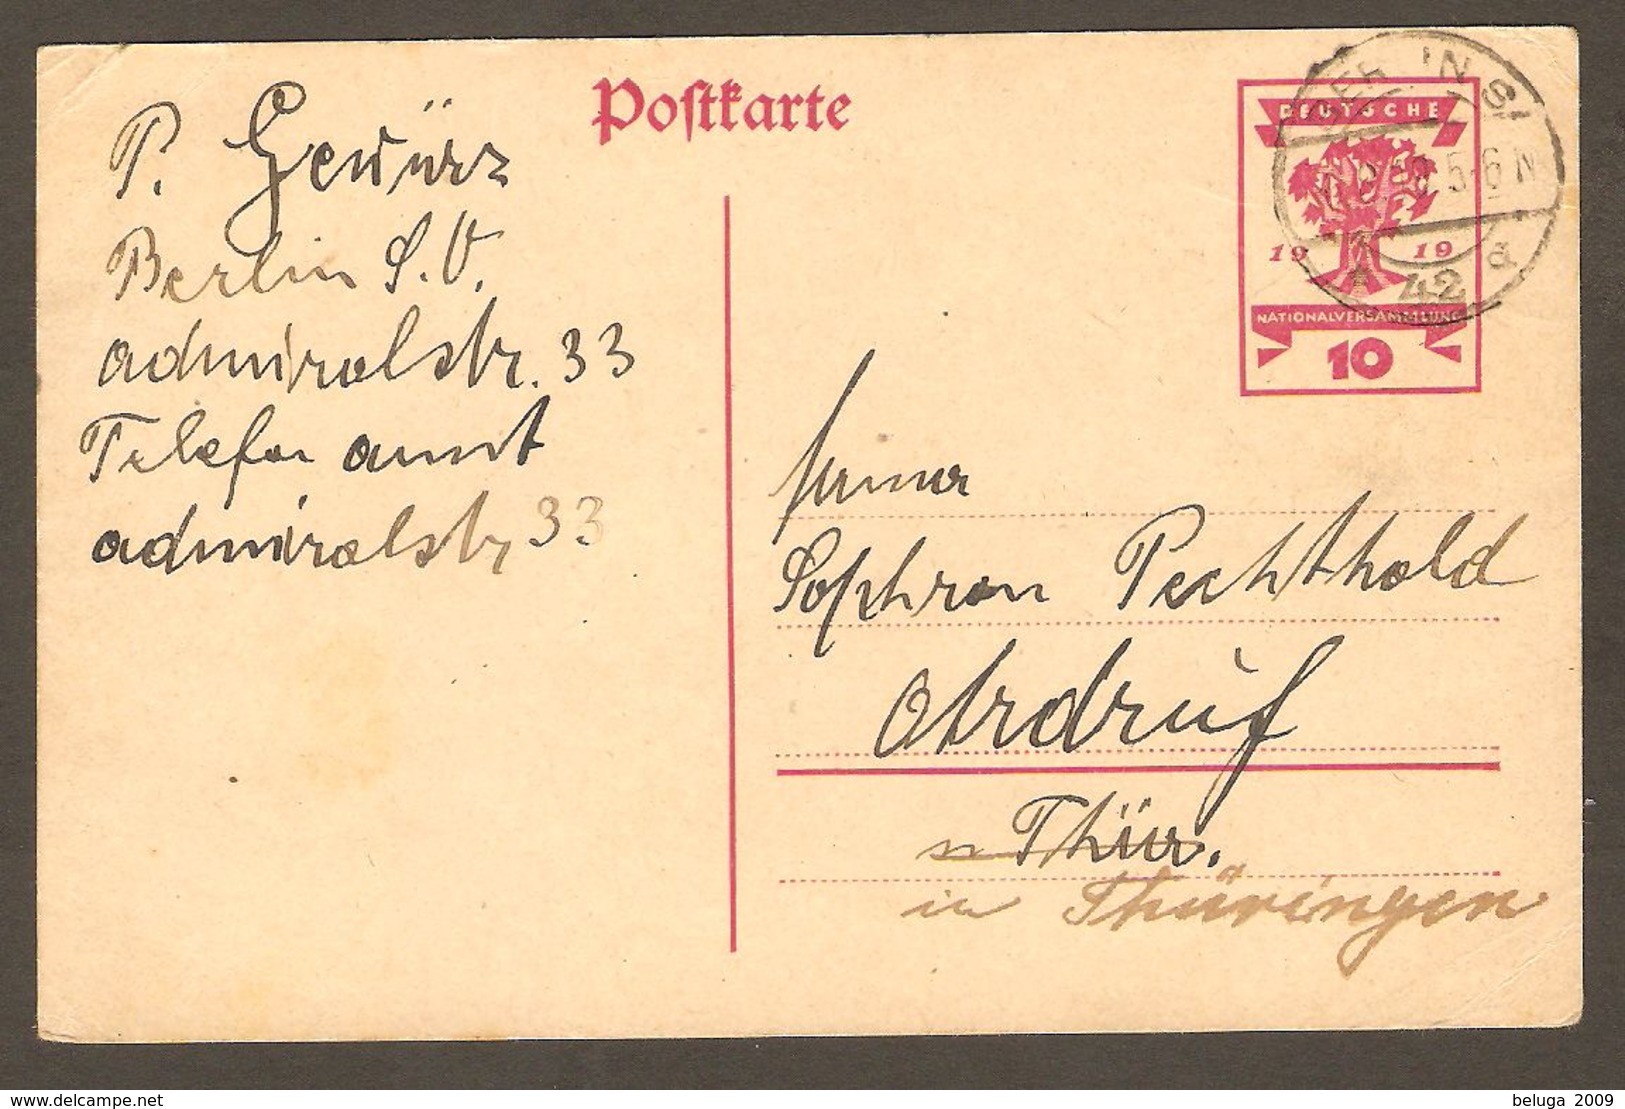 Postkarte
P. Gewürz
Berlin S.O.
admiralstr. 33
Telefon amt
admiralstr 33
DEUTSCHE
19 19
NATIONALVERSAMMLUNG
10
BERLIN S
5-6 N
42 a
Sophron Pechthold
Ohrdruf
Thür.
in Thüringen
www.delcampe.net
beluga 2009